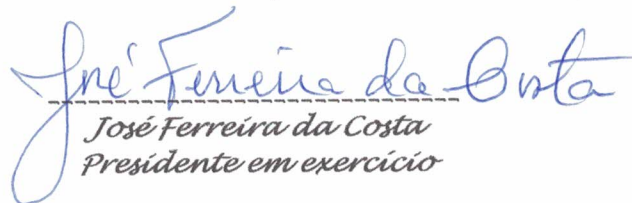 José Ferreira da Costa
José Ferreira da Costa
Presidente em exercício